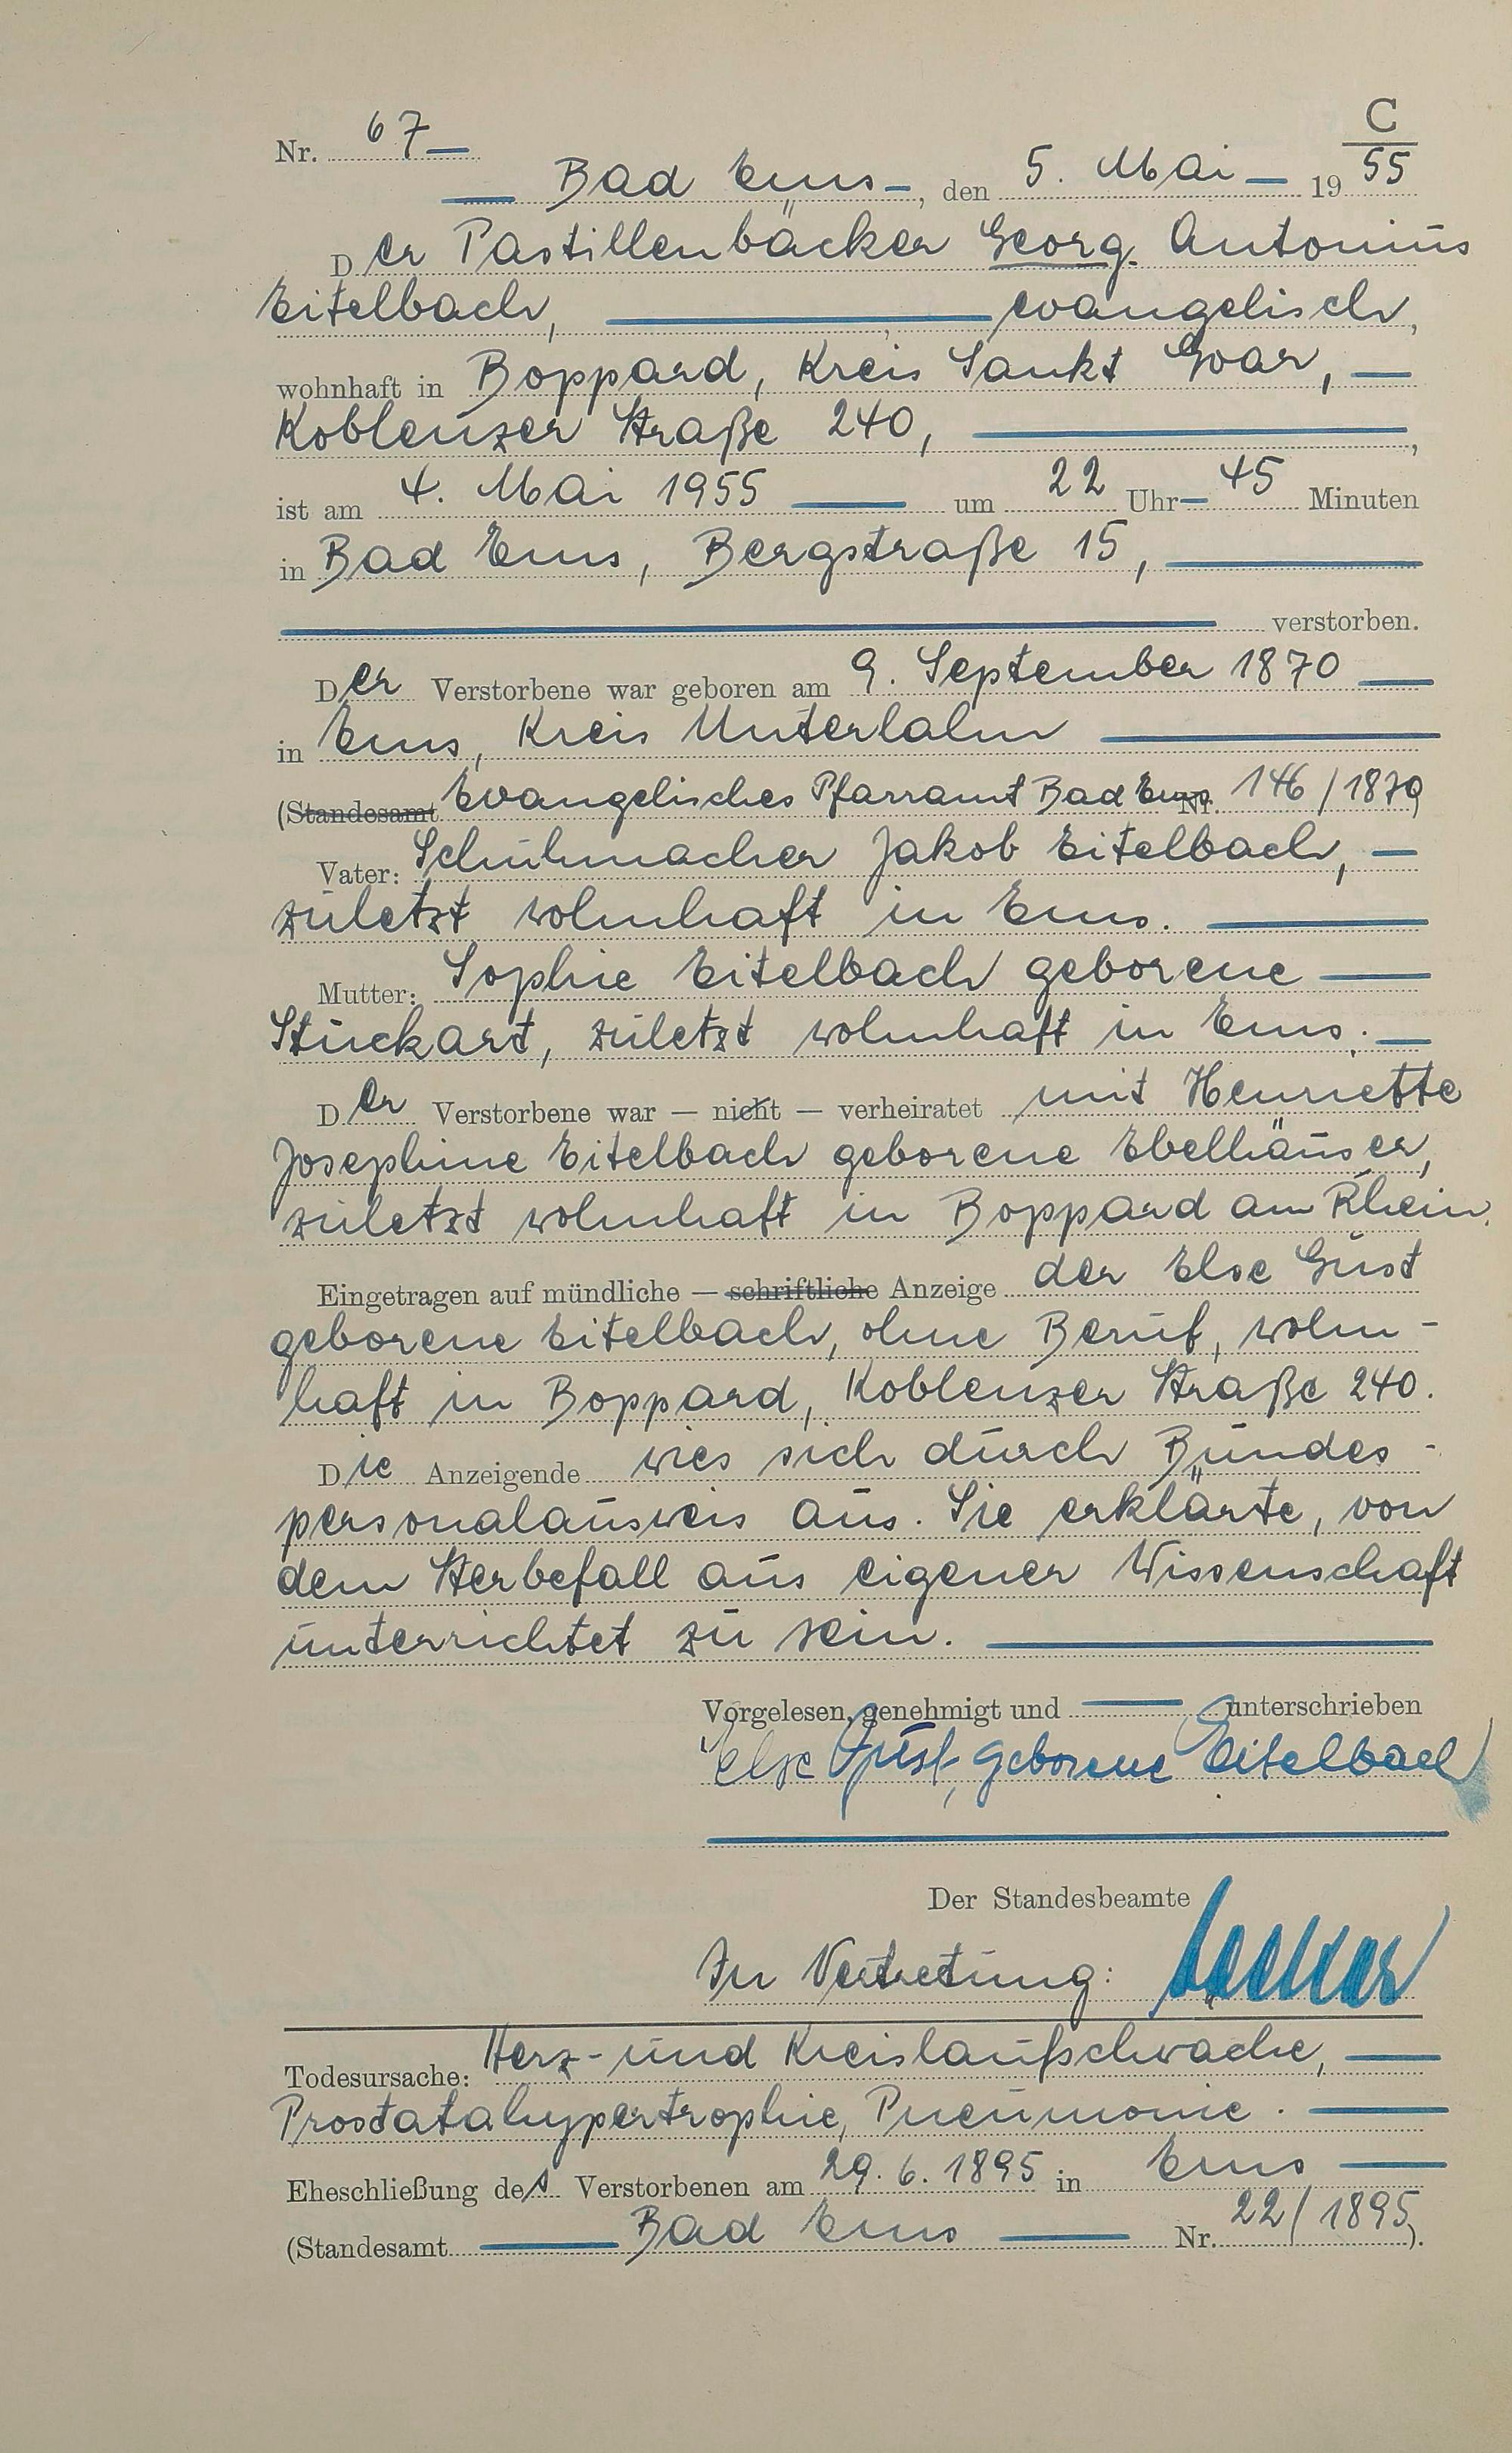 C
Nr. 67
Bad Ems, den 5. Mai 1955
Der Pastillenbäcker Georg Antonius
Eitelbach, evangelisch,
wohnhaft in Boppard, Kreis Sankt Goar,
Koblenzer Straße 240,
ist am 4. Mai 1955 um 22 Uhr 45 Minuten
in Bad Ems, Bergstraße 15,
verstorben.
Der Verstorbene war geboren am 9. September 1870
in Ems, Kreis Unterlahn
(Standesamt Evangelisches Pfarramt Bad Ems Nr. 146/1870)
Vater: Schuhmacher Jakob Eitelbach,
zuletzt wohnhaft in Ems.
Mutter: Sophie Eitelbach geborene
Stuckart, zuletzt wohnhaft in Ems.
Der Verstorbene war — nicht — verheiratet mit Henriette
Josephine Eitelbach geborene Ebelhäuser,
zuletzt wohnhaft in Boppard am Rhein.
Eingetragen auf mündliche — schriftliche Anzeige der Else Gust
geborene Eitelbach, ohne Beruf, wohn-
haft in Boppard, Koblenzer Straße 240.
Die Anzeigende wies sich durch Bundes-
personalausweis aus. Sie erklärte, von
dem Sterbefall aus eigener Wissenschaft
unterrichtet zu sein.
Vorgelesen, genehmigt und unterschrieben
Else Gust, geborene Eitelbach
Der Standesbeamte
In Vertretung:
Todesursache: Herz- und Kreislaufschwäche,
Prostatahypertrophie, Pneumonie.
Eheschließung des Verstorbenen am 29. 6. 1895 in Ems
(Standesamt Bad Ems Nr. 22/1895).